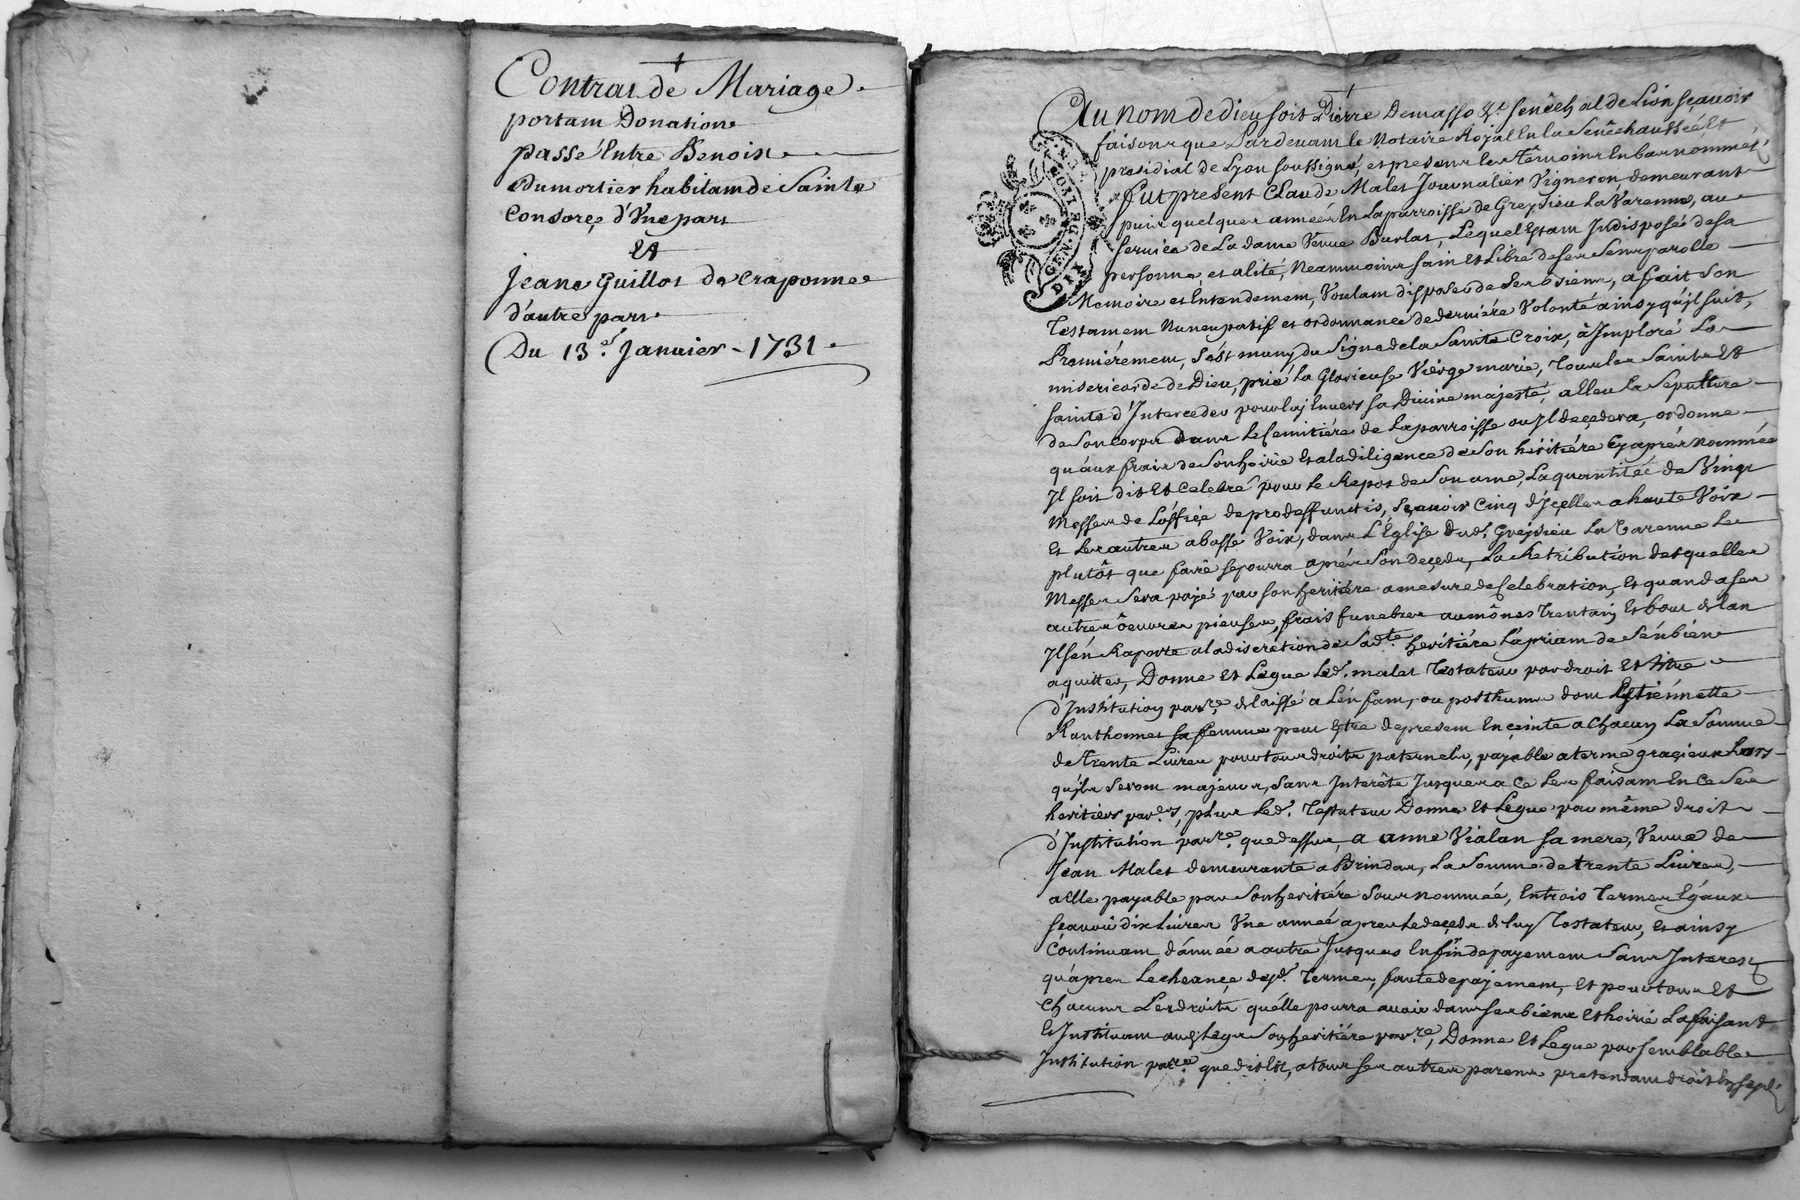 Contrat de Mariage
portant Donation
passé Entre Benoist
Dumortier habitant de Sainte
Consorçe d'Une part
Et
Jeane Guillot de Craponne
d'autre part
Du 13e Janvier 1731
Au nom de dieu soit Pierre Demasso Sr. senechal de Lion sçavoir
faisons que Pardevant le Notaire Royal En la Senéchaussée Et
presidial de Lyon soussigné, et presents les Témoins En bas nommés
fut present Claude Malet Journalier Vigneron demeurant
puis quelques années En La parroisse de Greysieu La Varenne, au
service de La dame Veuve Burlat, Lequel Estant Indisposé de sa
personne et alité, Neammoins sain Et Libre de ses sens parolle
Memoire et Entendement, Voulant disposer de ses biens, a fait son
Testament Nuncupatif et ordonnance de derniére Volonté ainsy qu'il suit,
Premiérement, s'est muny du Signe de la Sainte Croix, a Imploré La
misericorde de Dieu, prié La Glorieuse Vierge marie, Tous les Saints Et
sainte d'Interceder pour luy Envers sa Divine majesté, a Elleu La Sepulture
de son corps dans Le Cemitiére de La parroisse ou Jl decedera, ordonne
qu'aux frais de son hoirie Et a la diligence de son héritiére Cy aprés nommée
Jl soit dit Et Celebré pour Le Repos de son ame, La quantitée de Vingt
Messes de L'office de pro deffunctis, sçavoir Cinq d'Jcelles a haute Voix
Et Les autres a basse Voix, dans L'Église Dud. Greysieu La Varenne Le
plutôt que faire se pourra aprés son decedz, La Retribution desquelles
Messes sera payé par son heritiére a mesure de Celebration, Et quand a ses
autres oeuvres pieuses, frais funebres aumônes Trentain Et bout de l'an
Jl s'en Raporte a la discretion de sad.te heritiére La priant de s'en bien
aquitter, Donne Et Legue Led. malet Testateur par droit Et titre
d'Institution par.re delaissé a L'enfant, ou posthume dont Estiénnette
sa femme peut Estre de present Enceinte a Chacun La Somme
de Trente Livres pour tous droits paternels, payable a terme gracieux Lors
qu'ils seront majeurs, sans Interéts Jusques a ce Les faisant En Ce Ses
heritiers par.rs, plus Led. Testateur Donne Et Legue par même droit
d'Institution par.re que dessus, a anne Vialan sa mere, Veuve de
Jean Malet demeurante a Brindas, La Somme de trente Livres,
a Elle payable par son heritiére sous nommée, En trois Termes Egaux
sçavoir dix Livres Une année apres Le decedz de luy Testateur, et ainsy
Continuant d'année a autre Jusques En fin de payement sans Interest
qu'apres L'echeance desd. Termes, faute de payement, Et pour tous Et
Chacuns Les droits qu'elle pourra avoir dans ses biens Et hoirie La faisant
Et Instituant aud. Legs son heritiére par.re, Donne Et Legue par semblable
Institution par.re que dit Est, a tous ses autres parens pretendant droit En sesd.